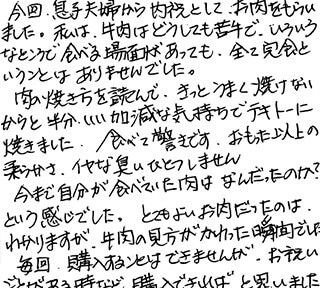 今回、息子夫婦から内祝として、お肉をもらい
ました。私は、牛肉はどうしても苦手で、いろいろ
なところで食べる場面があっても、全て完食と
いうことはありませんでした。
肉の焼き方を読んで、きっとうまく焼けない
からと半分いい加減な気持ちでテキトーに
焼きました。食べて驚きです。おもた以上の
柔らかさ、イヤな臭いひとつしません
今まで自分が食べていた肉はなんだったのか?
という感じでした。とてもよいお肉だったのは、
わかりますが、牛肉の見方がかわった瞬間でした
毎回、購入することはできませんが、お祝い
ごとがある時など、購入できればと思いました